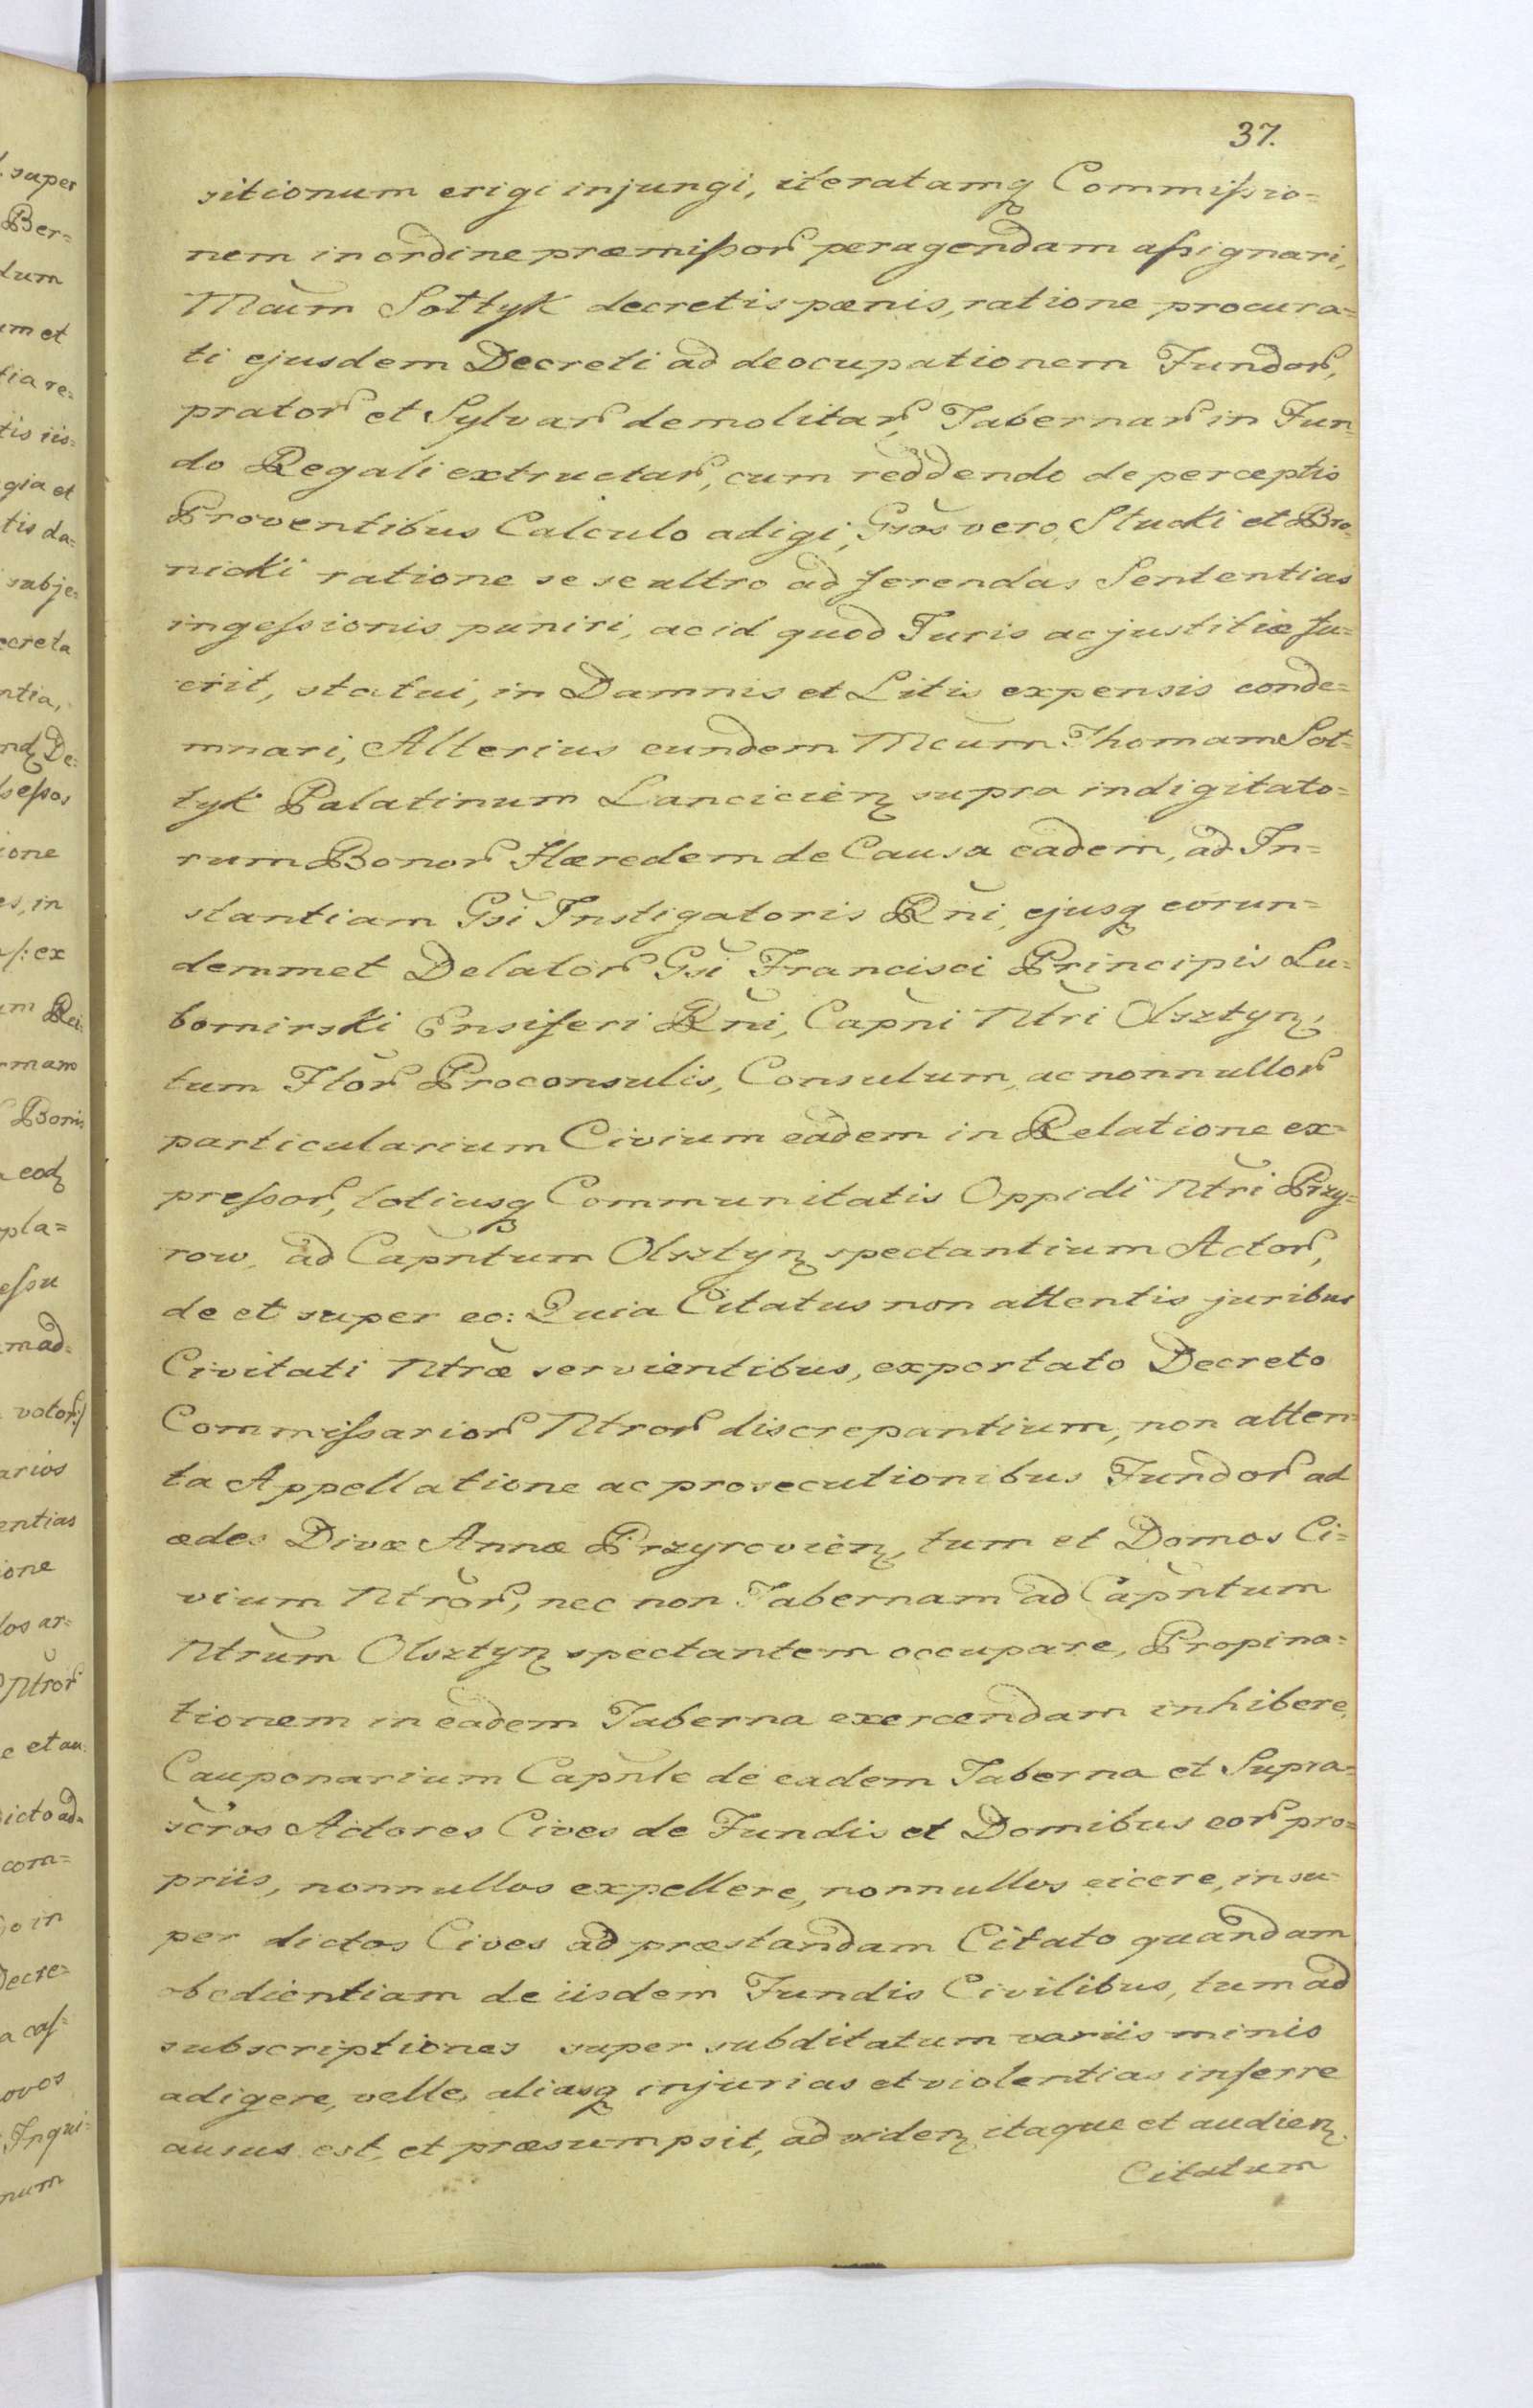 37.
sitionum erigi injungi, iteratamq Commißio=
nem in ordine præmißor peragendam aßignari,
Mcum Sołtyk decretis pænis, ratione procura=
ti ejusdem Decreti ad deocupationem Fundor,
prator et Sylvar demolitar, Tabernar in Fun=
do Regali extructar, cum reddendo de perceptis
Proventibus Calculo adigi, Gsos vero, Stucki et Bro=
nicki ratione se se ultro ad ferendas Sententias
ingeßionis puniri, ac id quod Juris ac justitiæ fu=
erit, statui, in Damnis et Litis expensis conde=
mnari, Alterius eundem Mcum Thomam Soł=
tyk Palatinum Lancicien supra indigitato=
rum Bonor Hæredem de Causa eadem, ad In=
stantiam Gsi Instigatoris Rni, ejusq eorun=
demmet Delator Gsi Francisci Principis Lu=
bomirski Ensiferi Rni, Capni Ntri Olsztyn,
tum Htor Proconsulis, Consulum, ac nonnullor
particularium Civium eadem in Relatione ex=
preßor, totiusq Communitatis Oppidi Ntri Przy=
row, ad Capntum Olsztyn spectantium Actor,
de et super eo: Quia Citatus non attentis juribus
Civitati Ntræ servientibus, exportato Decreto
Commißarior Ntror discrepantium, non atten=
ta Appellatione ac prosecutionibus Fundor ad
ædes Divæ Annæ Przyrovien, tum et Domos Ci=
vium Ntror, nec non Tabernam ad Capntum
Ntrum Olsztyn spectantem occupare, Propina=
tionem in eadem Taberna exercendam inhibere,
Cauponarium Capnle de eadem Taberna et Supra=
scros Actores Cives de Fundis et Domibus eor pro=
priis, nonnullos expellere, nonnullos eicere, insu=
per dictos Cives ad præstandam Citato quandam
obedientiam de iisdem Fundis Civilibus, tum ad
subscriptiones super subditatum variis minis
adigere, velle, aliasq injurias et violentias inferre
ausus est, et præsumpsit, ad viden itaque et audien
Citatum